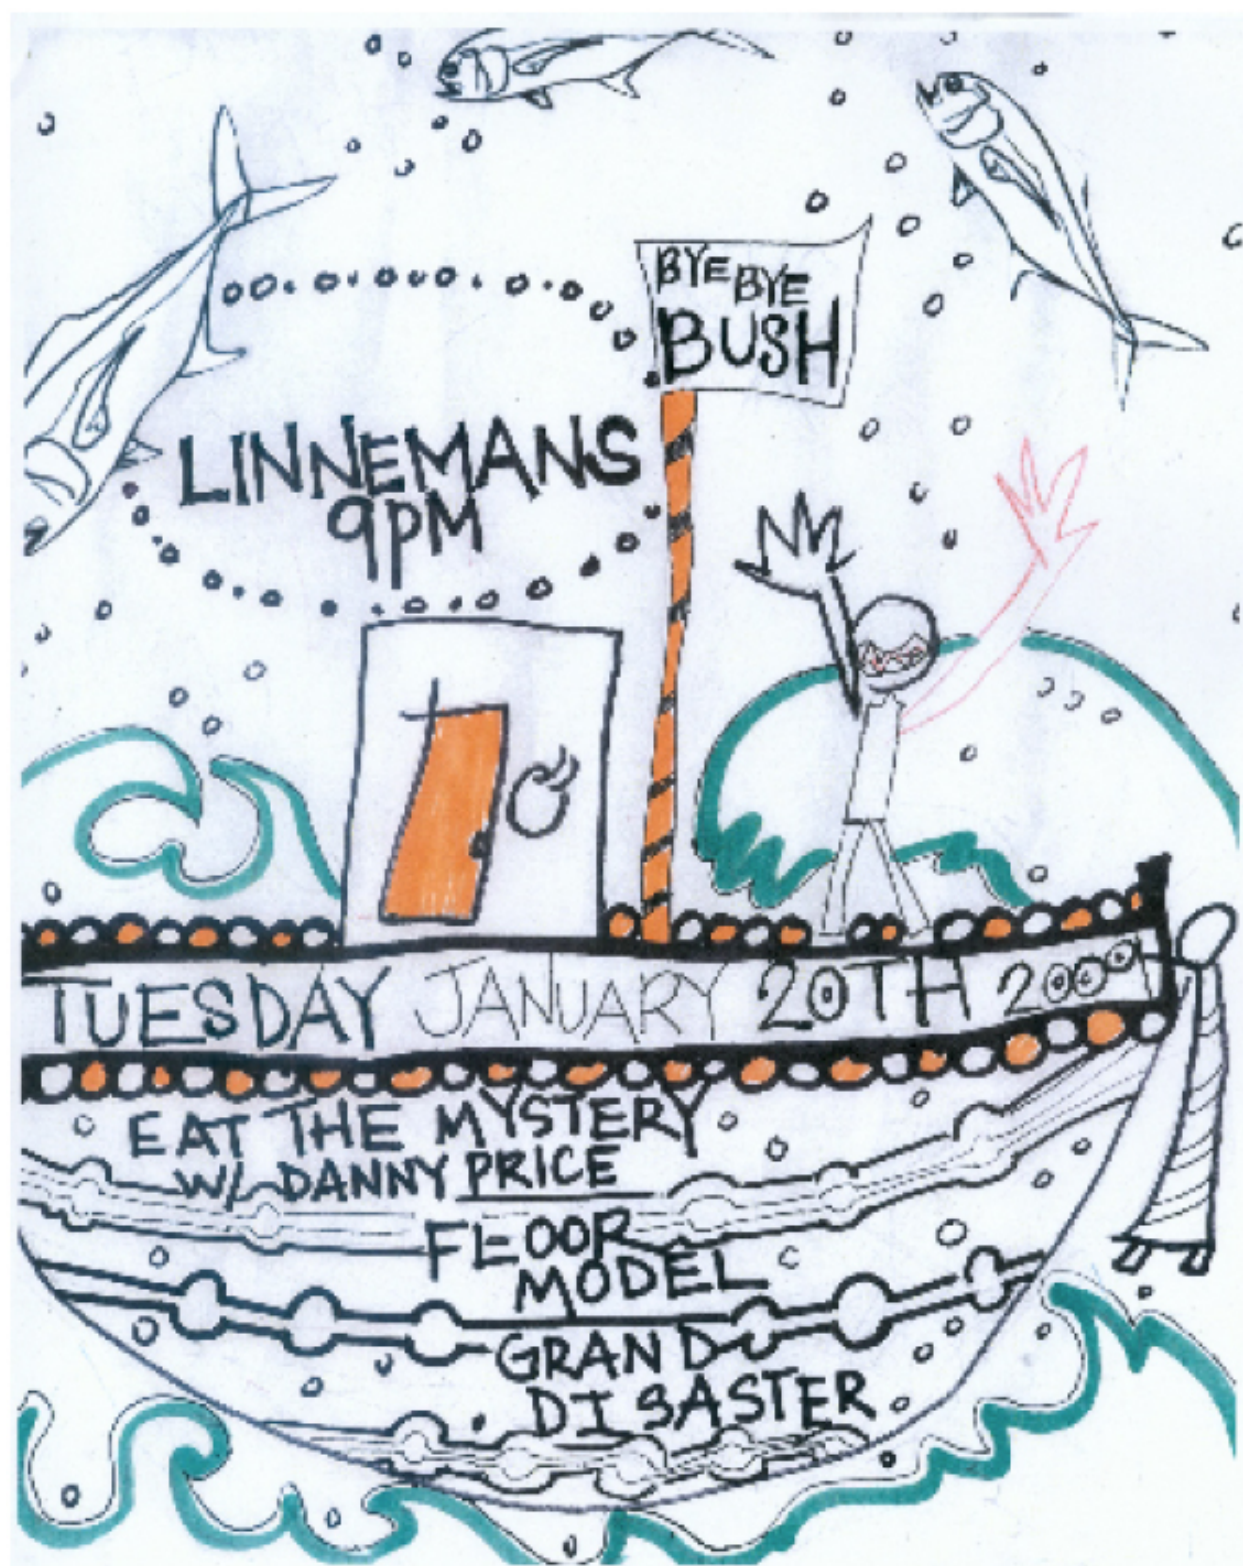 BYE BYE
BUSH
LINNEMANS
9PM
TUESDAY JANUARY 20TH 2009
EAT THE MYSTERY
W/ DANNY PRICE
FLOOR
MODEL
GRAND
DISASTER